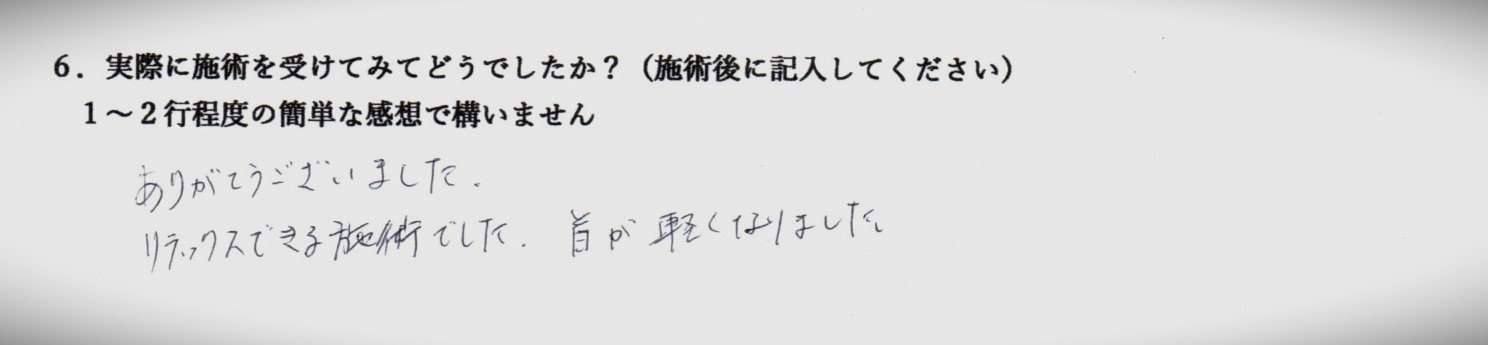 6．実際に施術を受けてみてどうでしたか？（施術後に記入してください）
1～2行程度の簡単な感想で構いません
ありがとうございました．
リラックスできる施術でした．首が軽くなりました。